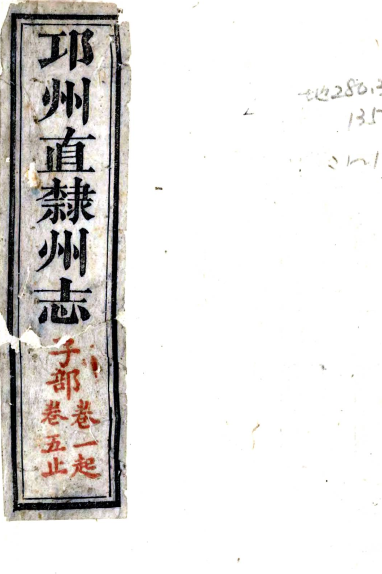 邛州直隸州志
子部
卷一起
卷五止
地280.3
135